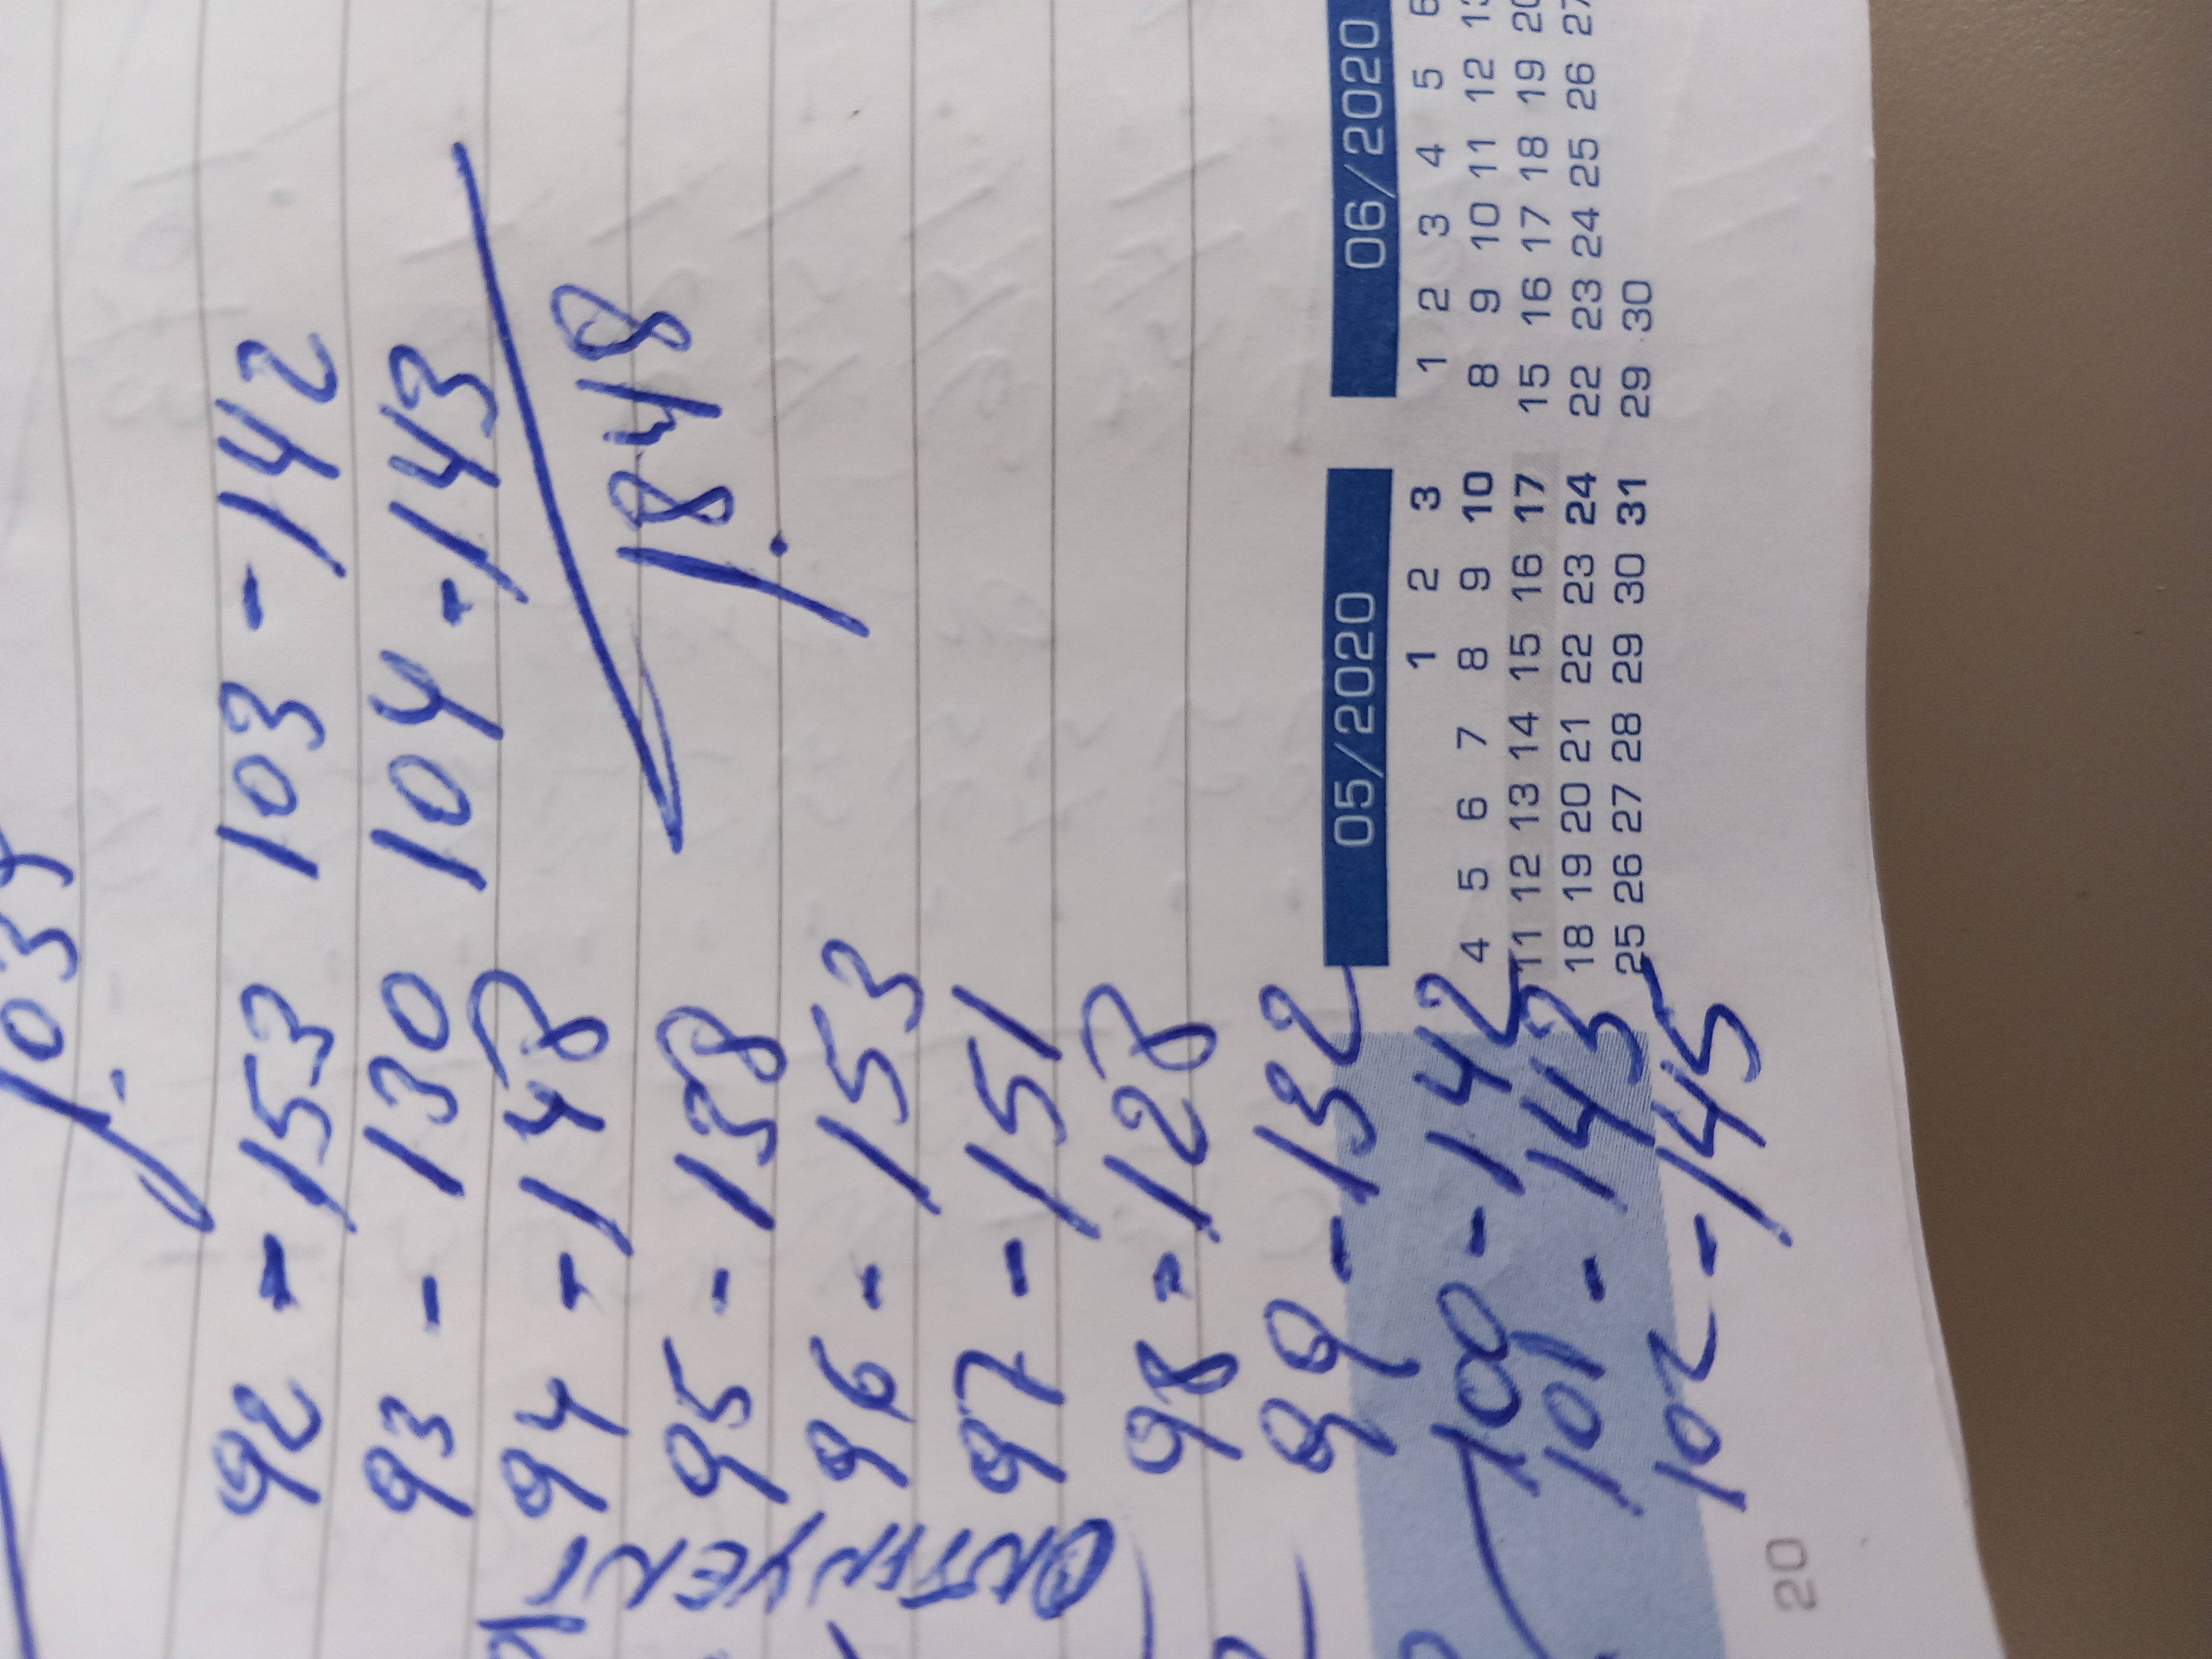 92 - 153 103 - 142
93 - 130 104 - 143
94 - 148
1.848
95 - 138
96 - 153
97 - 151
98 - 128
99 - 132
100 - 142
101 - 143
102 - 145
05/2020
1 2 3
4 5 6 7 8 9 10
11 12 13 14 15 16 17
18 19 20 21 22 23 24
25 26 27 28 29 30 31
06/2020
1 2 3 4 5 6
8 9 10 11 12 13
15 16 17 18 19 20
22 23 24 25 26 27
29 30
20